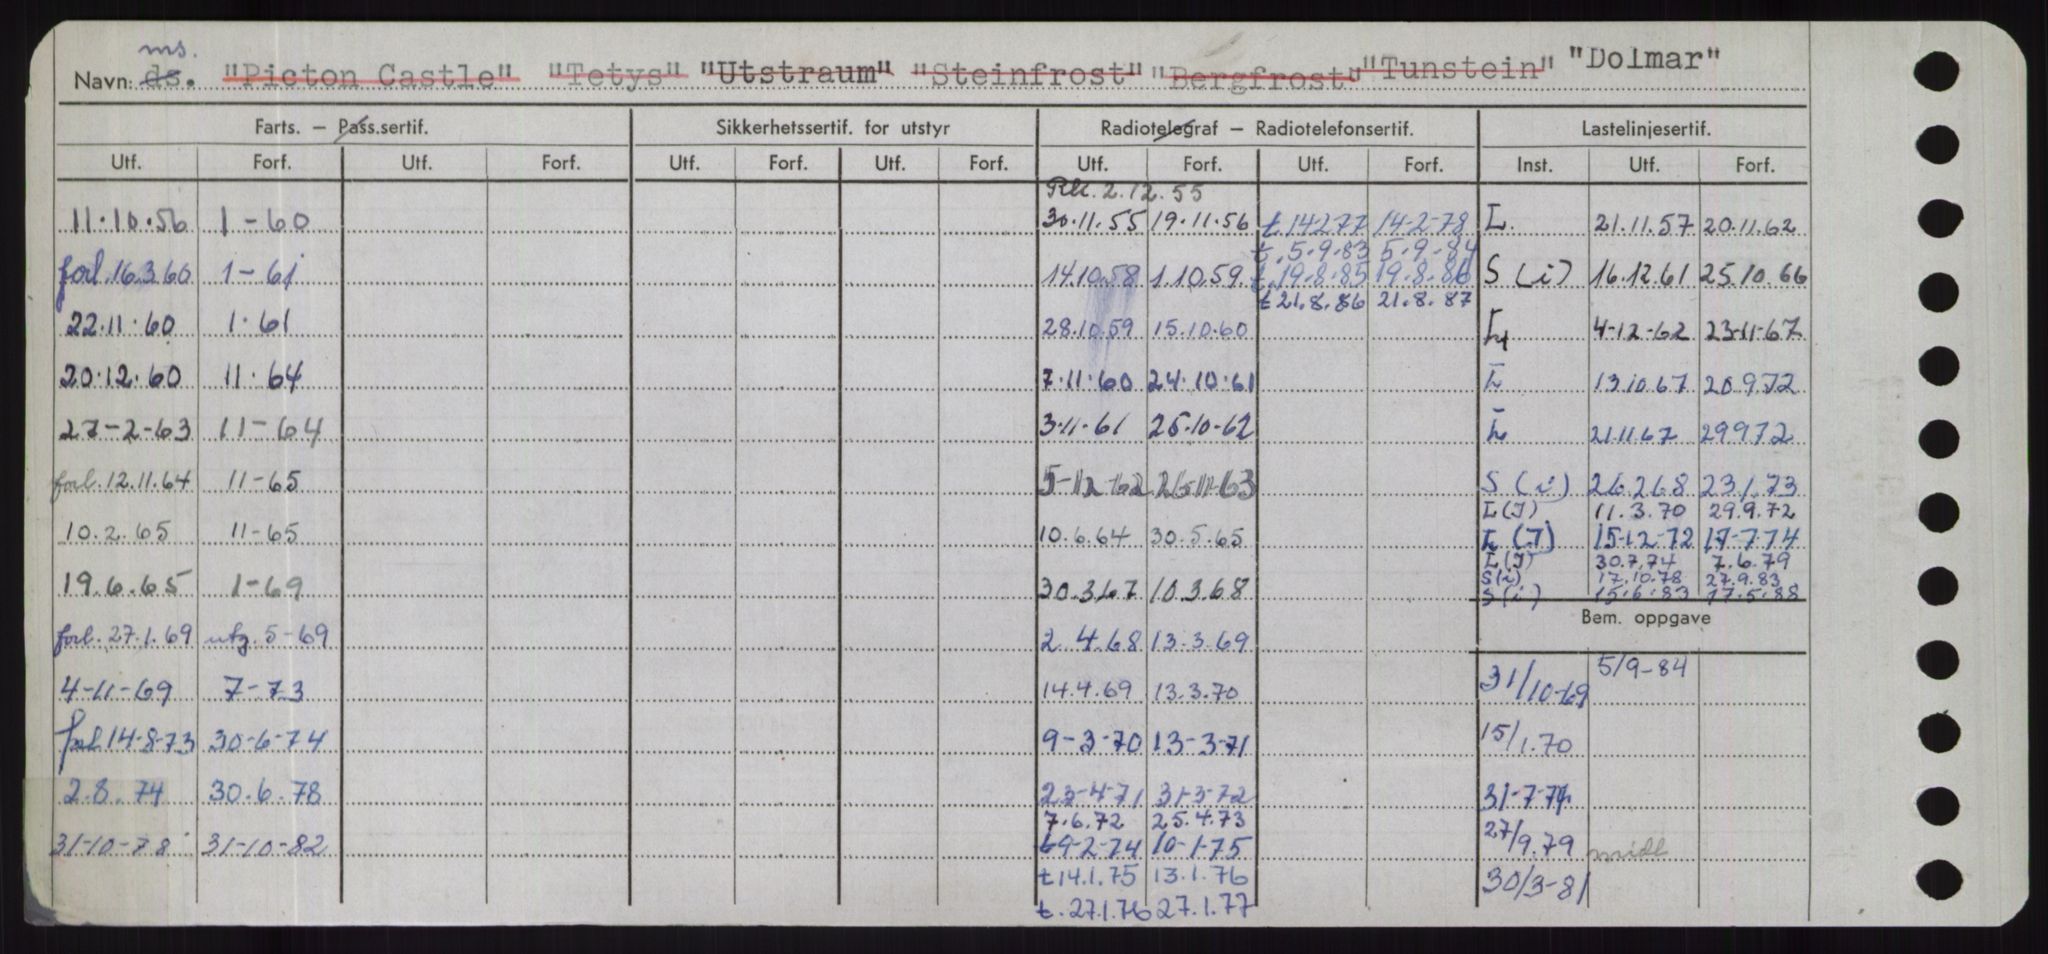 ms.
Navn: ds. "Picton Castle" "Tetys" "Utstraum" "Steinfrost" "Bergfrost" "Tunstein" "Dolmar"
Farts. – Pass.sertif. Sikkerhetssertif. for utstyr Radiotelegraf – Radiotelefonsertif. Lastelinjesertif.
Utf. Forf. Utf. Forf. Utf. Forf. Utf. Forf. Utf. Forf. Utf. Forf. Inst. Utf. Forf.
2.12.55
11.10.56 1-60 30.11.55 19.11.56 t.14277 14-2-78 L. 21.11.57 20.11.62
t.5.9.83 5.9.84
forl.16.3.60 1-61 14.10.58 1.10.59. t.19.8.85 19.8.86 S (i) 16.12.61 25.10.66
t 21.8.86 21.8.87
22.11.60 1.61 28.10.59 15.10.60 L 4-12-62 23-11-67
20.12.60 11.64 7.11.60 24.10.61 L 13.10.67 20.9.72
27-2-63 11-64 3-11-61 25-10-62 L 21.11.67 29972
forl.12.11.64 11-65 5-12-62 26-11-63 S (i) 26.268 231.73
L(I) 11.3.70 29.9.72
10.2.65 11-65 10.6.64 30.5.65 L (I) 15-12-72 17-7-74
L(I) 30.7.74 7.6.79
S(i) 17.10.78 27.9.83
19.6.65 1-69 30.3.67 10.3.68 S(i) 15.6.83 17.5.88
Bem. oppgave
forl.27.1.69 utg.5-69 2.4.68 13.3.69
4-11-69 7-73 14.4.69 13.3.70 31/10-69 5/9-84
forl 14-8-73 30-6-74 9-3-70 13-3-71 15/1.70
2.8.74 30.6.78 23-4-71 31-3-72 31-7-74
7.6.72 25.4.73
31-10-78 31-10-82 t9-2-74 10-1-75 27/9.79 midl
t14.1.75 13.1.76 30/3-81
t.27.1.76 27.1.77